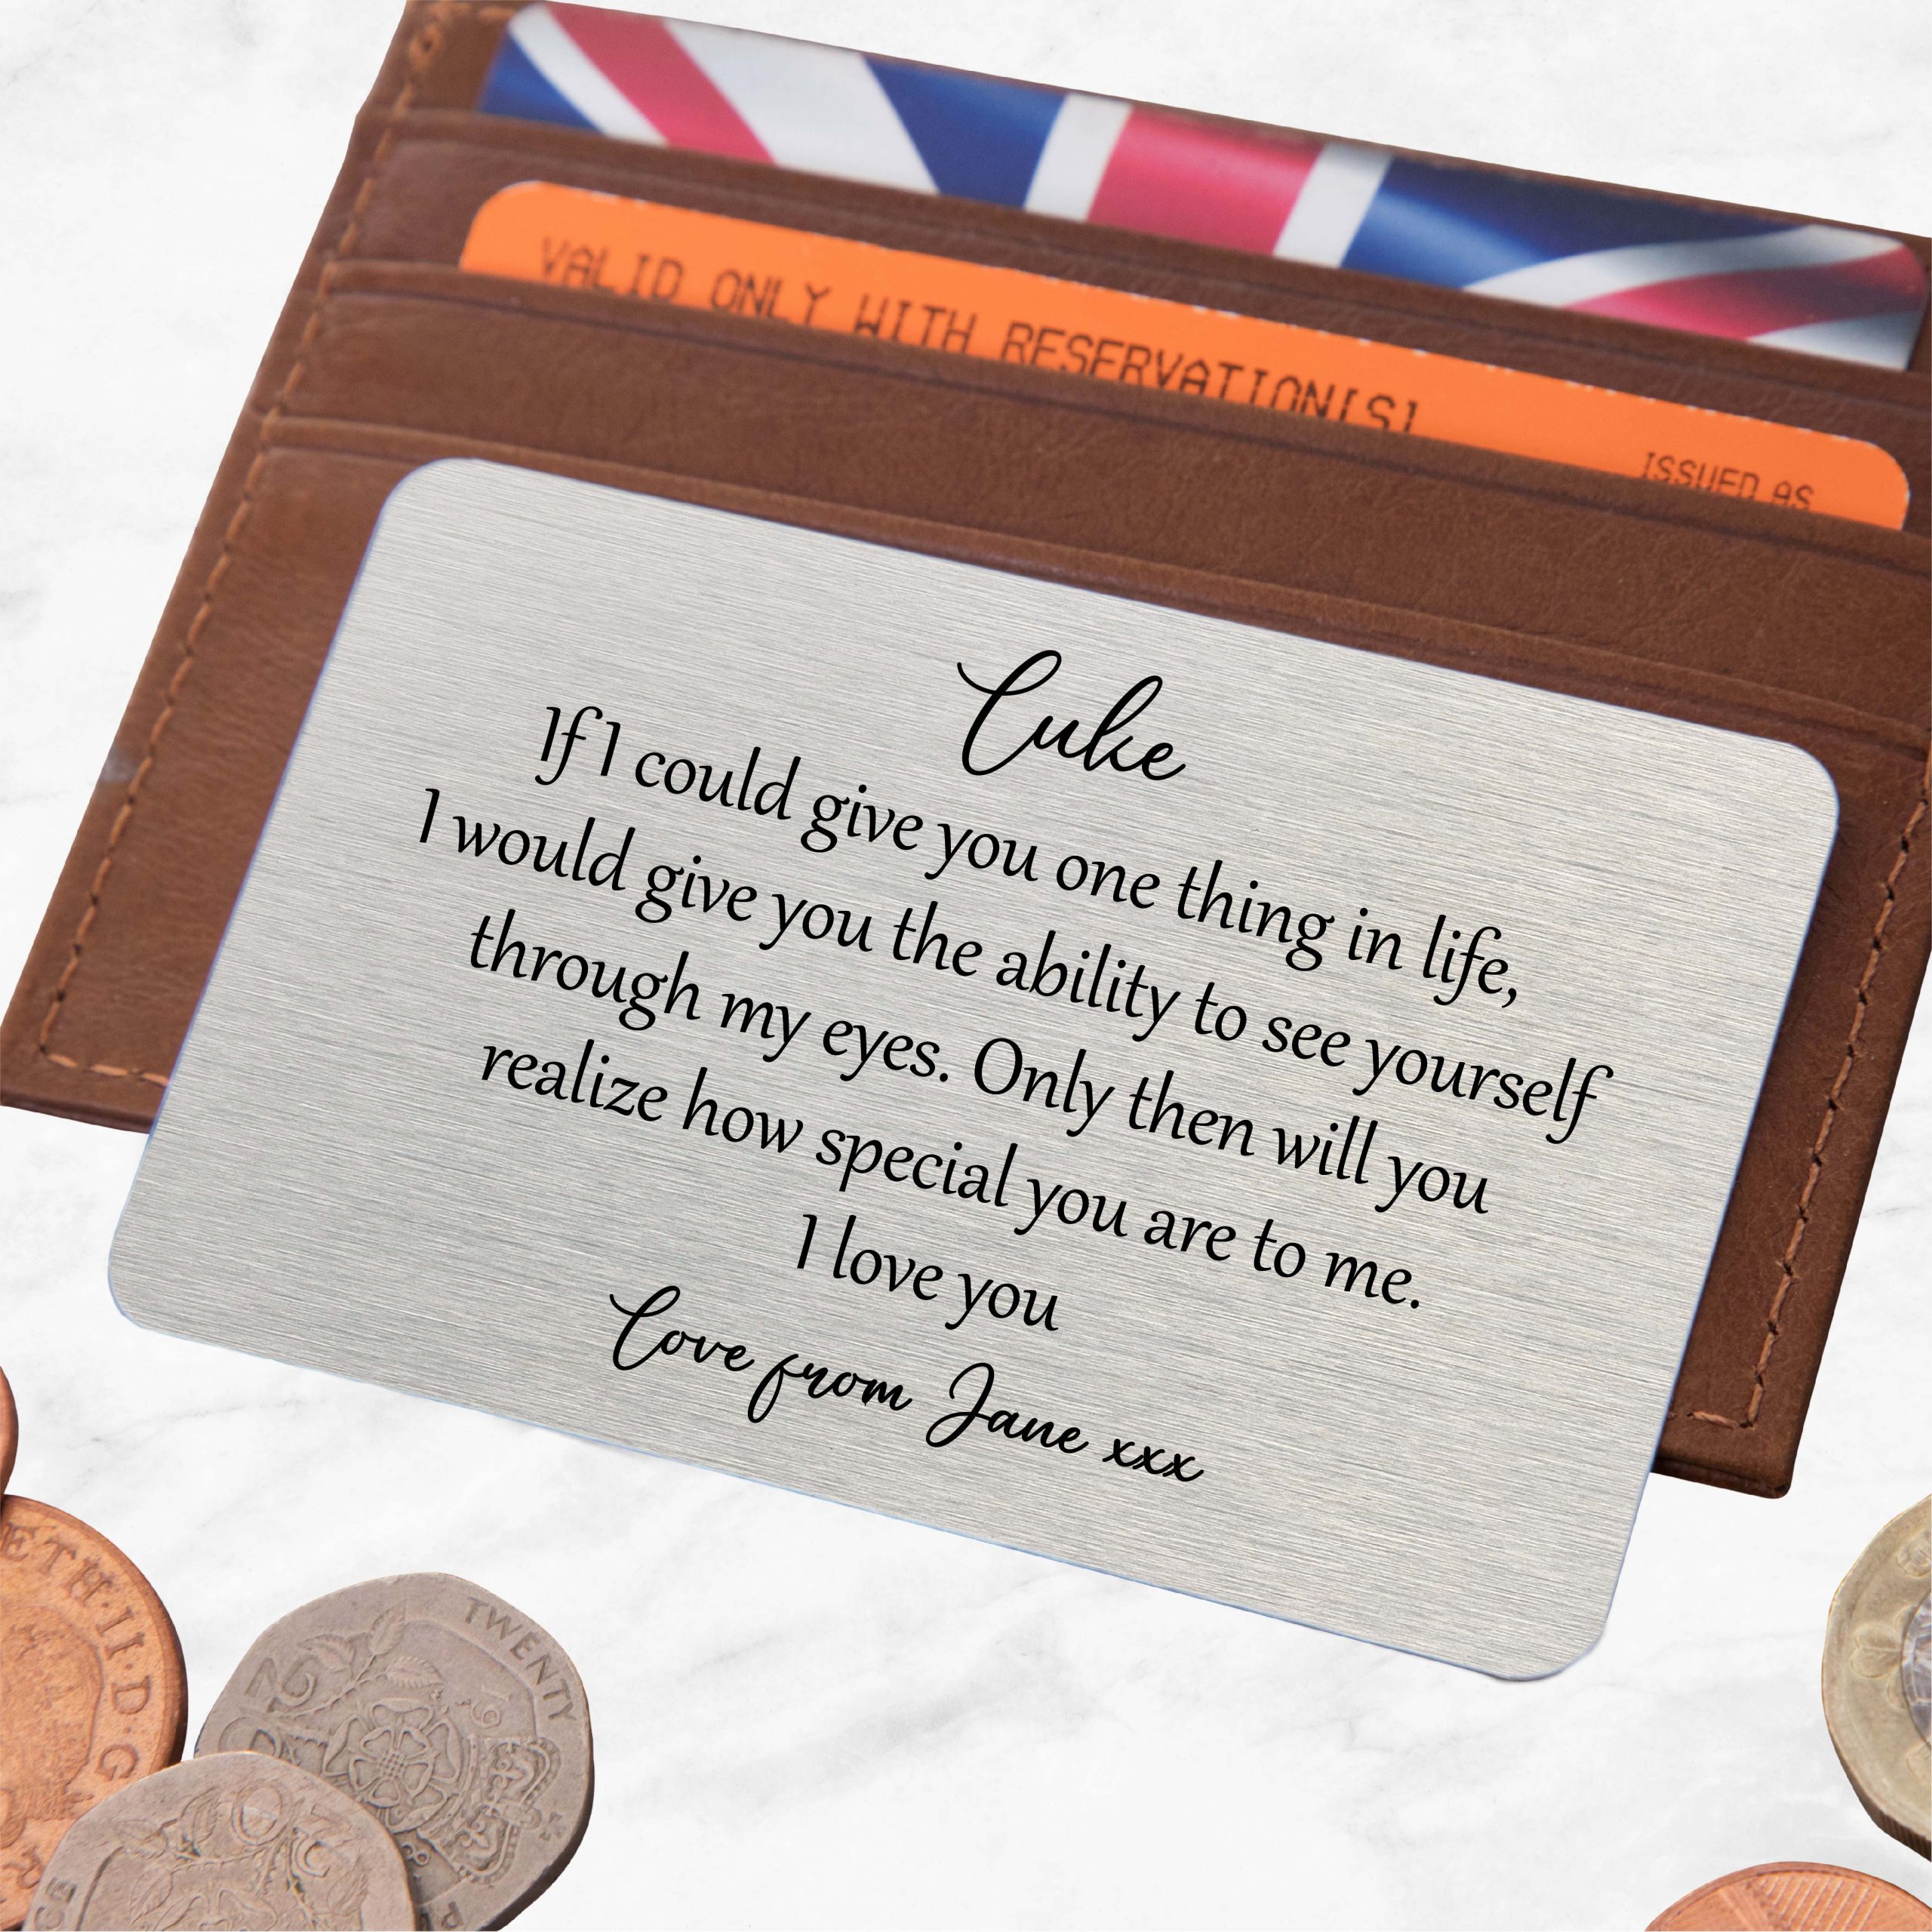 VALID ONLY WITH RESERVATION(S)
ISSUED AS
Luke
If I could give you one thing in life,
I would give you the ability to see yourself
through my eyes. Only then will you
realize how special you are to me.
I love you
Love from Jane xxx
ETH·II·D·G
TWENTY